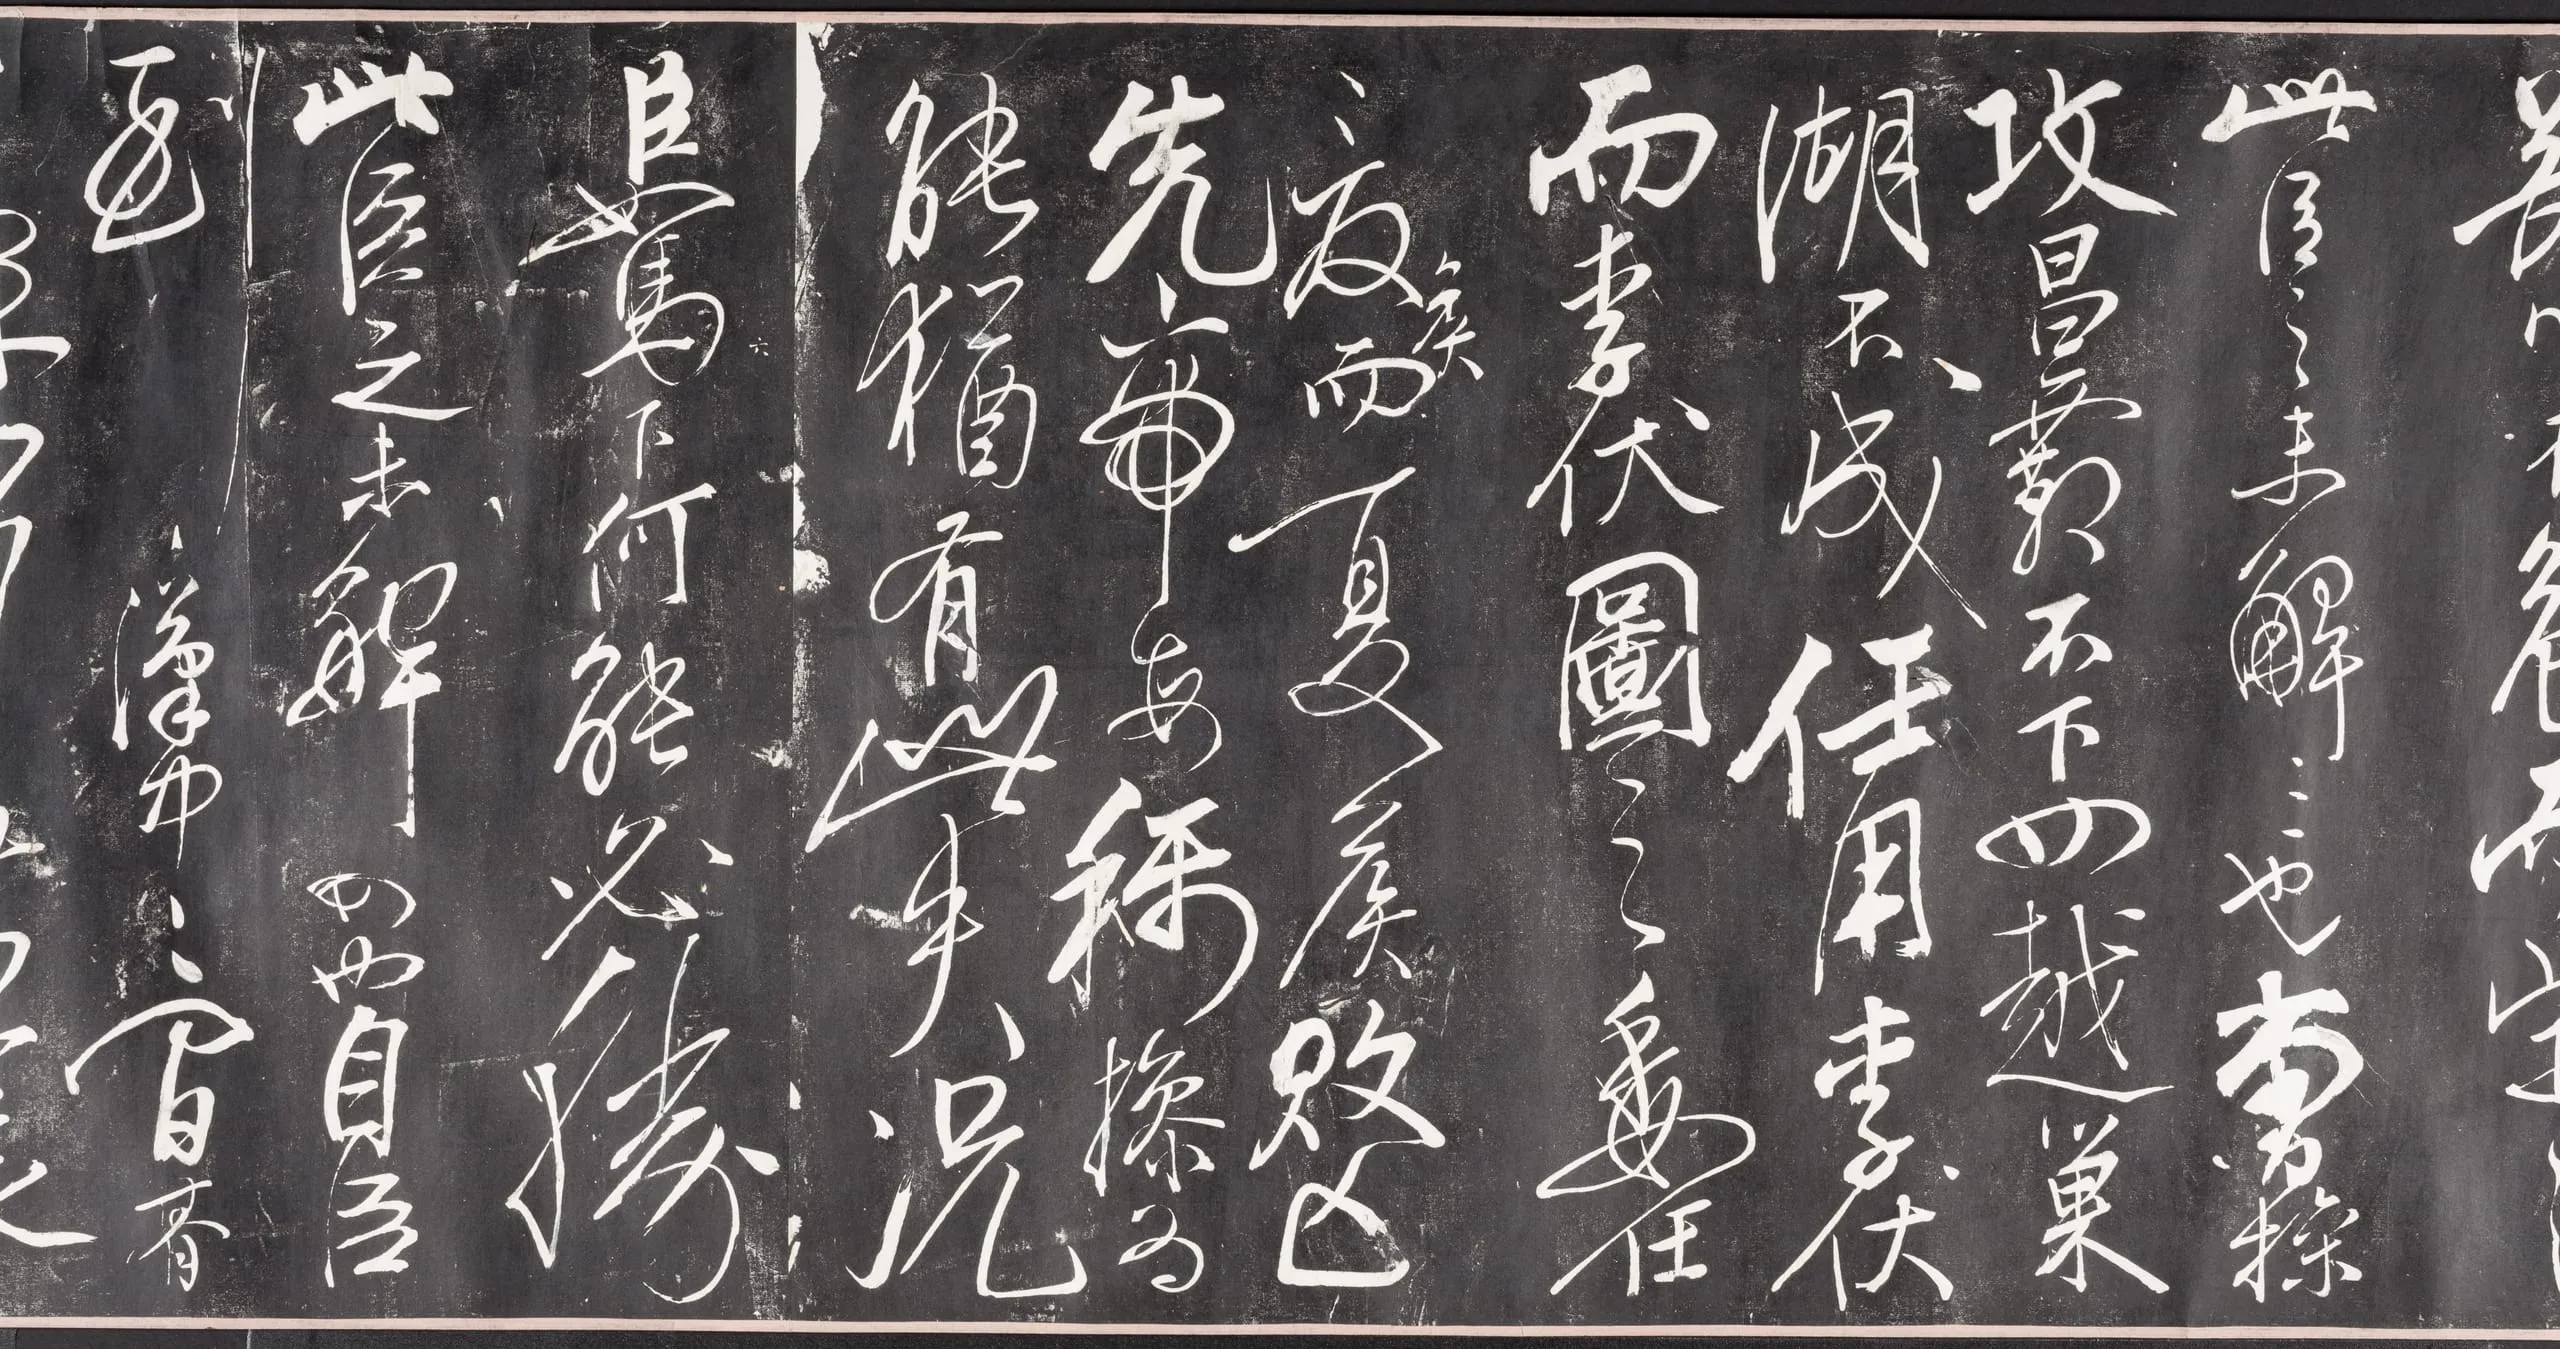 此臣之未解三也曹操
攻昌霸不下四越巢
湖不成任用李伏
而李伏圖之委任
夏侯而夏侯敗亡
先帝每稱操為
能猶有此失況
六
臣駑下何能必勝
此臣之未解四也自臣
到漢中々間朞